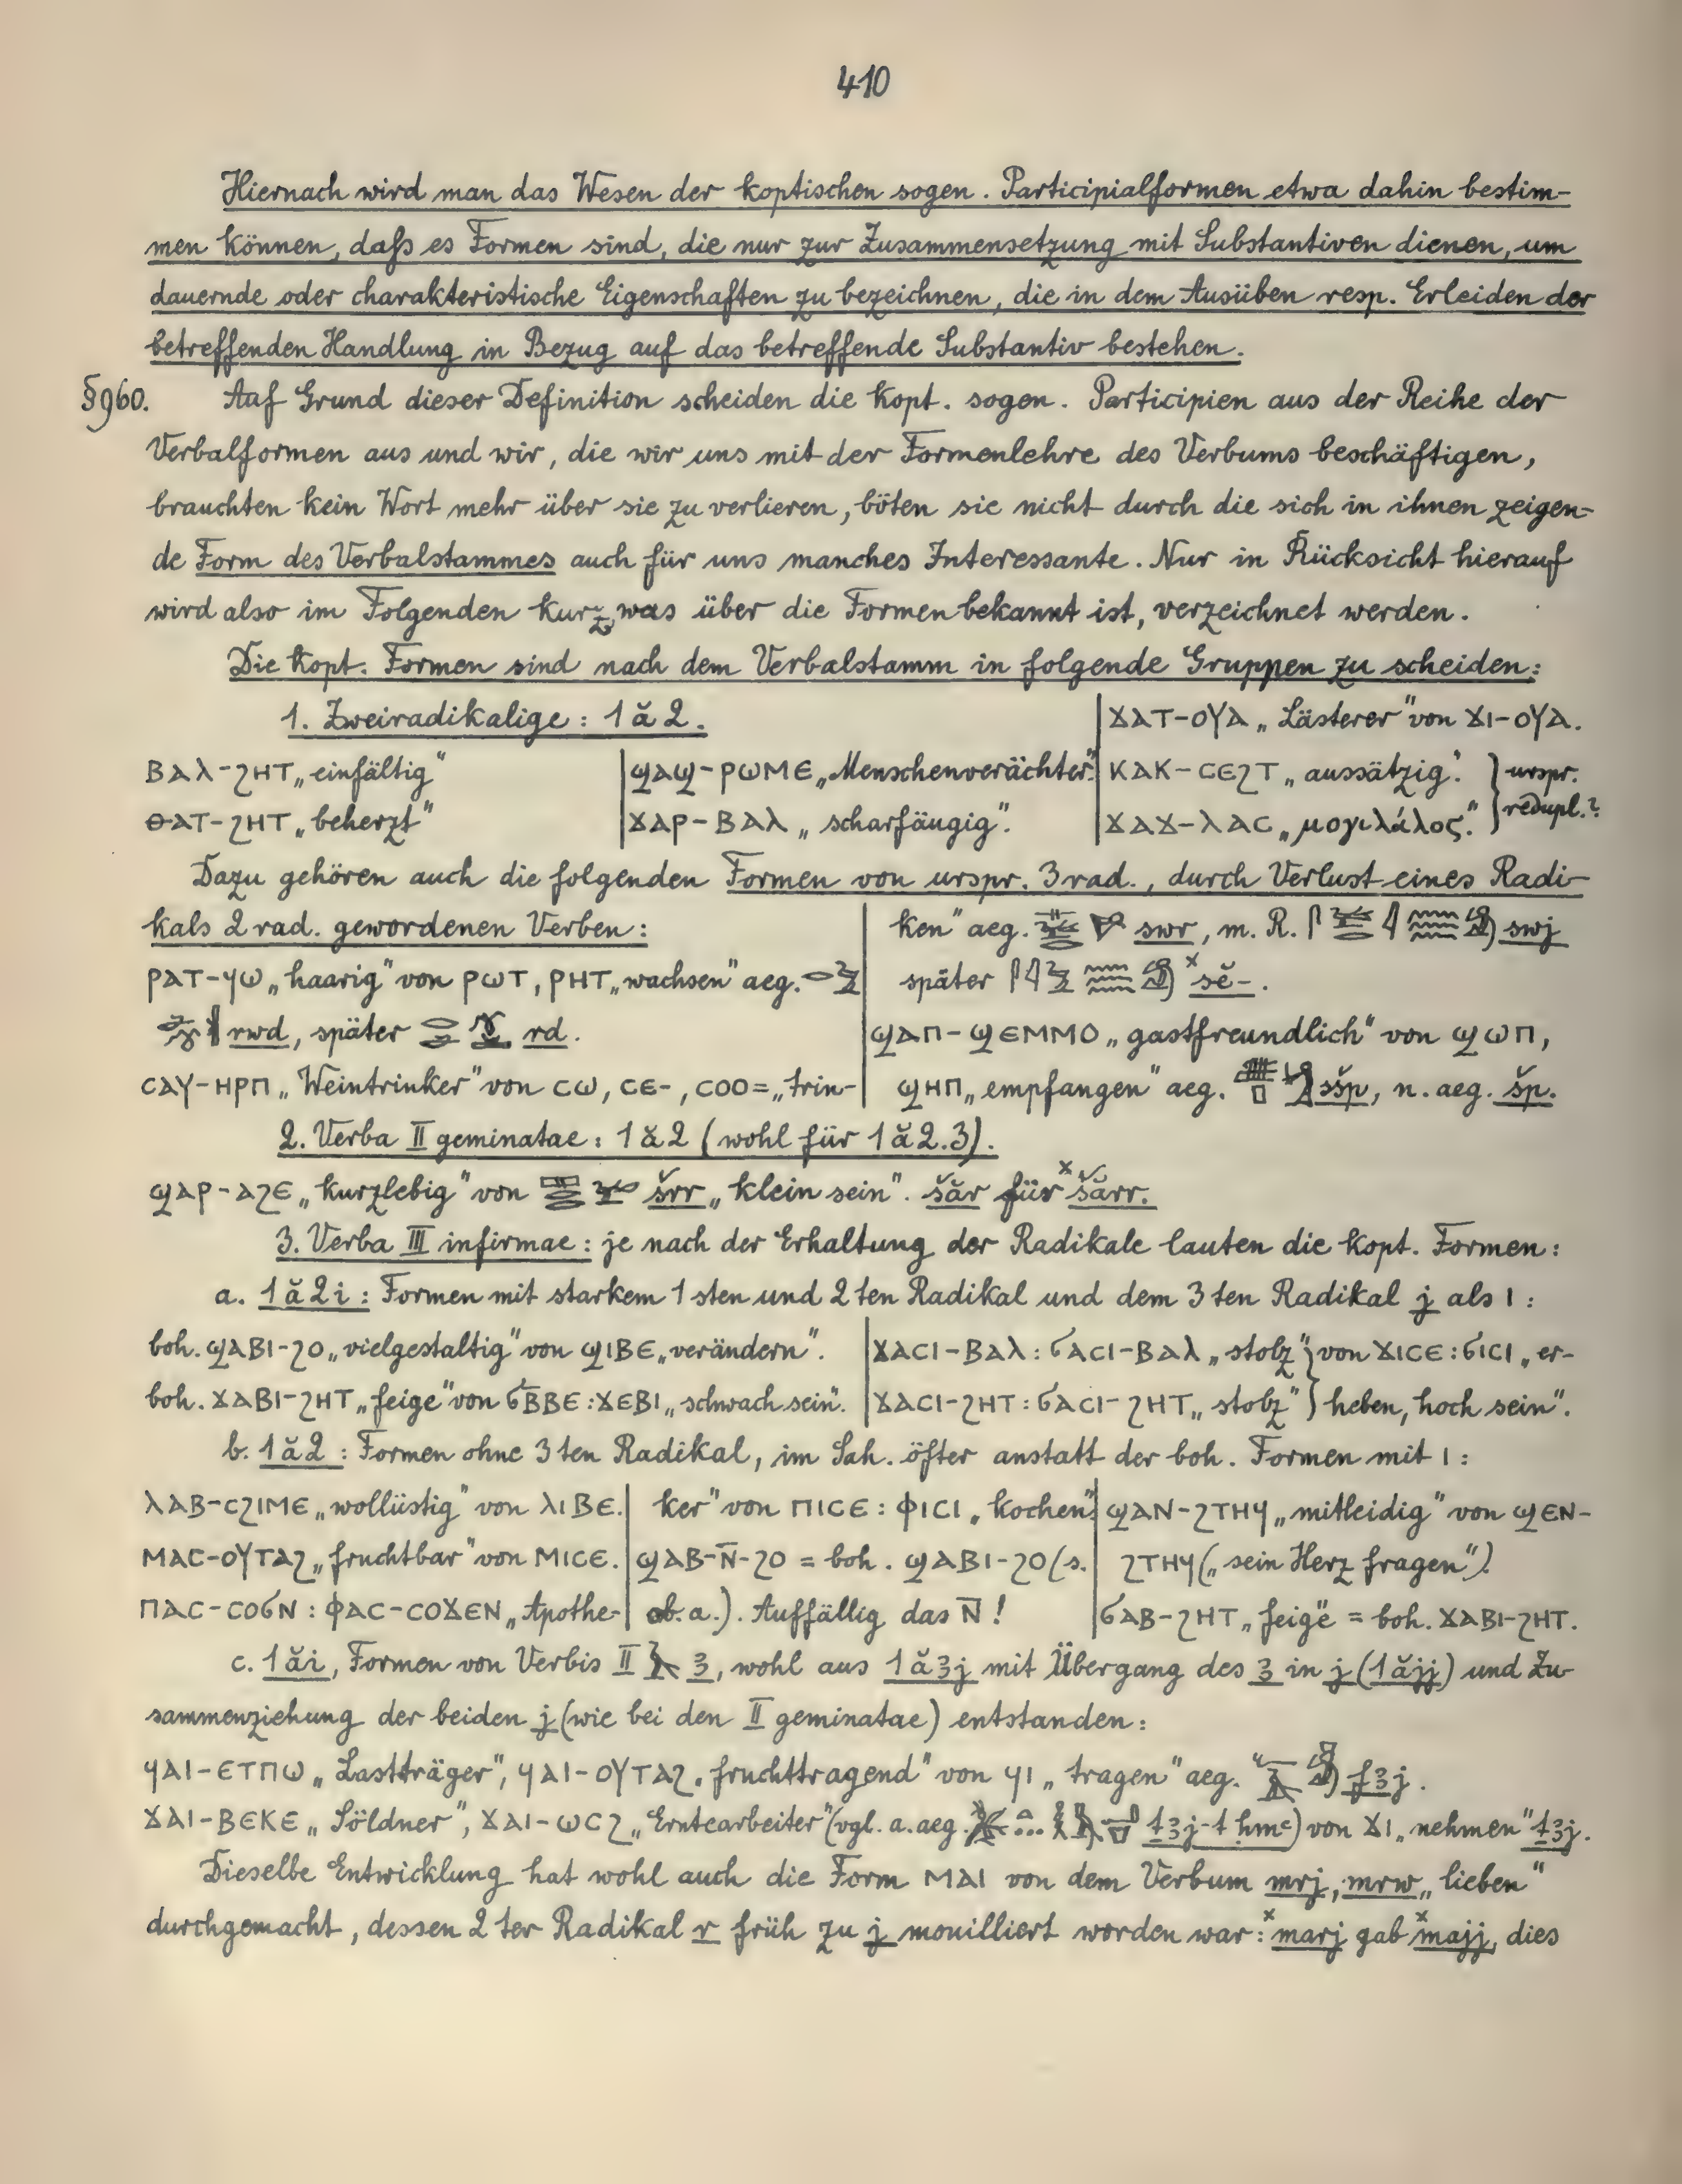 410
Hiernach wird man das Wesen der koptischen sogen. Participialformen etwa dahin bestim-
men können, daß es Formen sind, die nur zur Zusammensetzung mit Substantiven dienen, um
dauernde oder charakteristische Eigenschaften zu bezeichnen, die in dem Ausüben resp. Erleiden der
betreffenden Handlung in Bezug auf das betreffende Substantiv bestehen.
§960. Auf Grund dieser Definition scheiden die kopt. sogen. Participien aus der Reihe der
Verbalformen aus und wir, die wir uns mit der Formenlehre des Verbums beschäftigen,
brauchten kein Wort mehr über sie zu verlieren, böten sie nicht durch die sich in ihnen zeigen-
de Form des Verbalstammes auch für uns manches Interessante. Nur in Rücksicht hierauf
wird also im Folgenden kurz, was über die Formen bekannt ist, verzeichnet werden.
Die kopt. Formen sind nach dem Verbalstamm in folgende Gruppen zu scheiden:
1. Zweiradikalige: 1ă2.
ⲃⲁⲗ-ϩⲏⲧ „einfältig"
ⲑⲁⲧ-ϩⲏⲧ „beherzt"
ϣⲁϣ-ⲣⲱⲙⲉ „Menschenverächter".
ϫⲁⲣ-ⲃⲁⲗ „scharfäugig".
ϫⲁⲧ-ⲟⲩⲁ „Lästerer" von ϫⲓ-ⲟⲩⲁ.
ⲕⲁⲕ-ⲥⲉϩⲧ „aussätzig". } urspr.
ϫⲁϫ-ⲗⲁⲥ „μογιλάλος". } redupl.?
Dazu gehören auch die folgenden Formen von urspr. 3rad., durch Verlust eines Radi-
kals 2rad. gewordenen Verben:
ⲣⲁⲧ-ϥⲱ „haarig" von ⲣⲱⲧ, ⲣⲏⲧ „wachsen" aeg.
rwd, später rd.
ⲥⲁⲩ-ⲏⲣⲡ „Weintrinker" von ⲥⲱ, ⲥⲉ-, ⲥⲟⲟ= „trin-
ken" aeg. swr, m. R. swj
später ˣsĕ-.
ϣⲁⲡ-ϣⲉⲙⲙⲟ „gastfreundlich" von ϣⲱⲡ,
ϣⲏⲡ „empfangen" aeg. šsp, n. aeg. šp.
2. Verba II geminatae: 1ă2 (wohl für 1ă2.3).
ϣⲁⲣ-ⲁϩⲉ „kurzlebig" von šrr „klein sein". šăr für ˣšărr.
3. Verba III infirmae: je nach der Erhaltung der Radikale lauten die kopt. Formen:
a. 1ă2i: Formen mit starkem 1sten und 2ten Radikal und dem 3ten Radikal j als ⲓ:
boh. ϣⲁⲃⲓ-ϩⲟ „vielgestaltig" von ϣⲓⲃⲉ „verändern".
boh. ϫⲁⲃⲓ-ϩⲏⲧ „feige" von ϭⲃ̅ⲃⲉ: ϫⲉⲃⲓ „schwach sein".
ϫⲁⲥⲓ-ⲃⲁⲗ: ϭⲁⲥⲓ-ⲃⲁⲗ „stolz" } von ϫⲓⲥⲉ: ϭⲓⲥⲓ „er-
ϫⲁⲥⲓ-ϩⲏⲧ: ϭⲁⲥⲓ-ϩⲏⲧ „stolz" } heben, hoch sein".
b. 1ă2: Formen ohne 3ten Radikal, im Sah. öfter anstatt der boh. Formen mit ⲓ:
ⲗⲁⲃ-ⲥϩⲓⲙⲉ „wollüstig" von ⲗⲓⲃⲉ.
ⲙⲁⲥ-ⲟⲩⲧⲁϩ „fruchtbar" von ⲙⲓⲥⲉ.
ⲡⲁⲥ-ⲥⲟϭⲛ: ⲫⲁⲥ-ⲥⲟϫⲉⲛ „Apothe-
ker" von ⲡⲓⲥⲉ: ⲫⲓⲥⲓ „kochen".
ϣⲁⲃ-ⲛ̅-ϩⲟ = boh. ϣⲁⲃⲓ-ϩⲟ (s.
ob. a.). Auffällig das ⲛ̅!
ϣⲁⲛ-ϩⲧⲏϥ „mitleidig" von ϣⲉⲛ-
ϩⲧⲏϥ („sein Herz fragen").
ϭⲁⲃ-ϩⲏⲧ „feige" = boh. ϫⲁⲃⲓ-ϩⲏⲧ.
c. 1ăi, Formen von Verbis II ꜣ, wohl aus 1ăꜣj mit Übergang des ꜣ in j (1ăjj) und Zu-
sammenziehung der beiden j (wie bei den II geminatae) entstanden:
ϥⲁⲓ-ⲉⲧⲡⲱ „Lastträger", ϥⲁⲓ-ⲟⲩⲧⲁϩ „fruchttragend" von ϥⲓ „tragen" aeg. fꜣj.
ϫⲁⲓ-ⲃⲉⲕⲉ „Söldner", ϫⲁⲓ-ⲱⲥϩ „Erntearbeiter" (vgl. a. aeg. ṯꜣj-t ḥmꜥ) von ϫⲓ „nehmen" ṯꜣj.
Dieselbe Entwicklung hat wohl auch die Form ⲙⲁⲓ von dem Verbum mrj, mrw „lieben"
durchgemacht, dessen 2ter Radikal r früh zu j mouilliert worden war: ˣmarj gab ˣmajj, dies